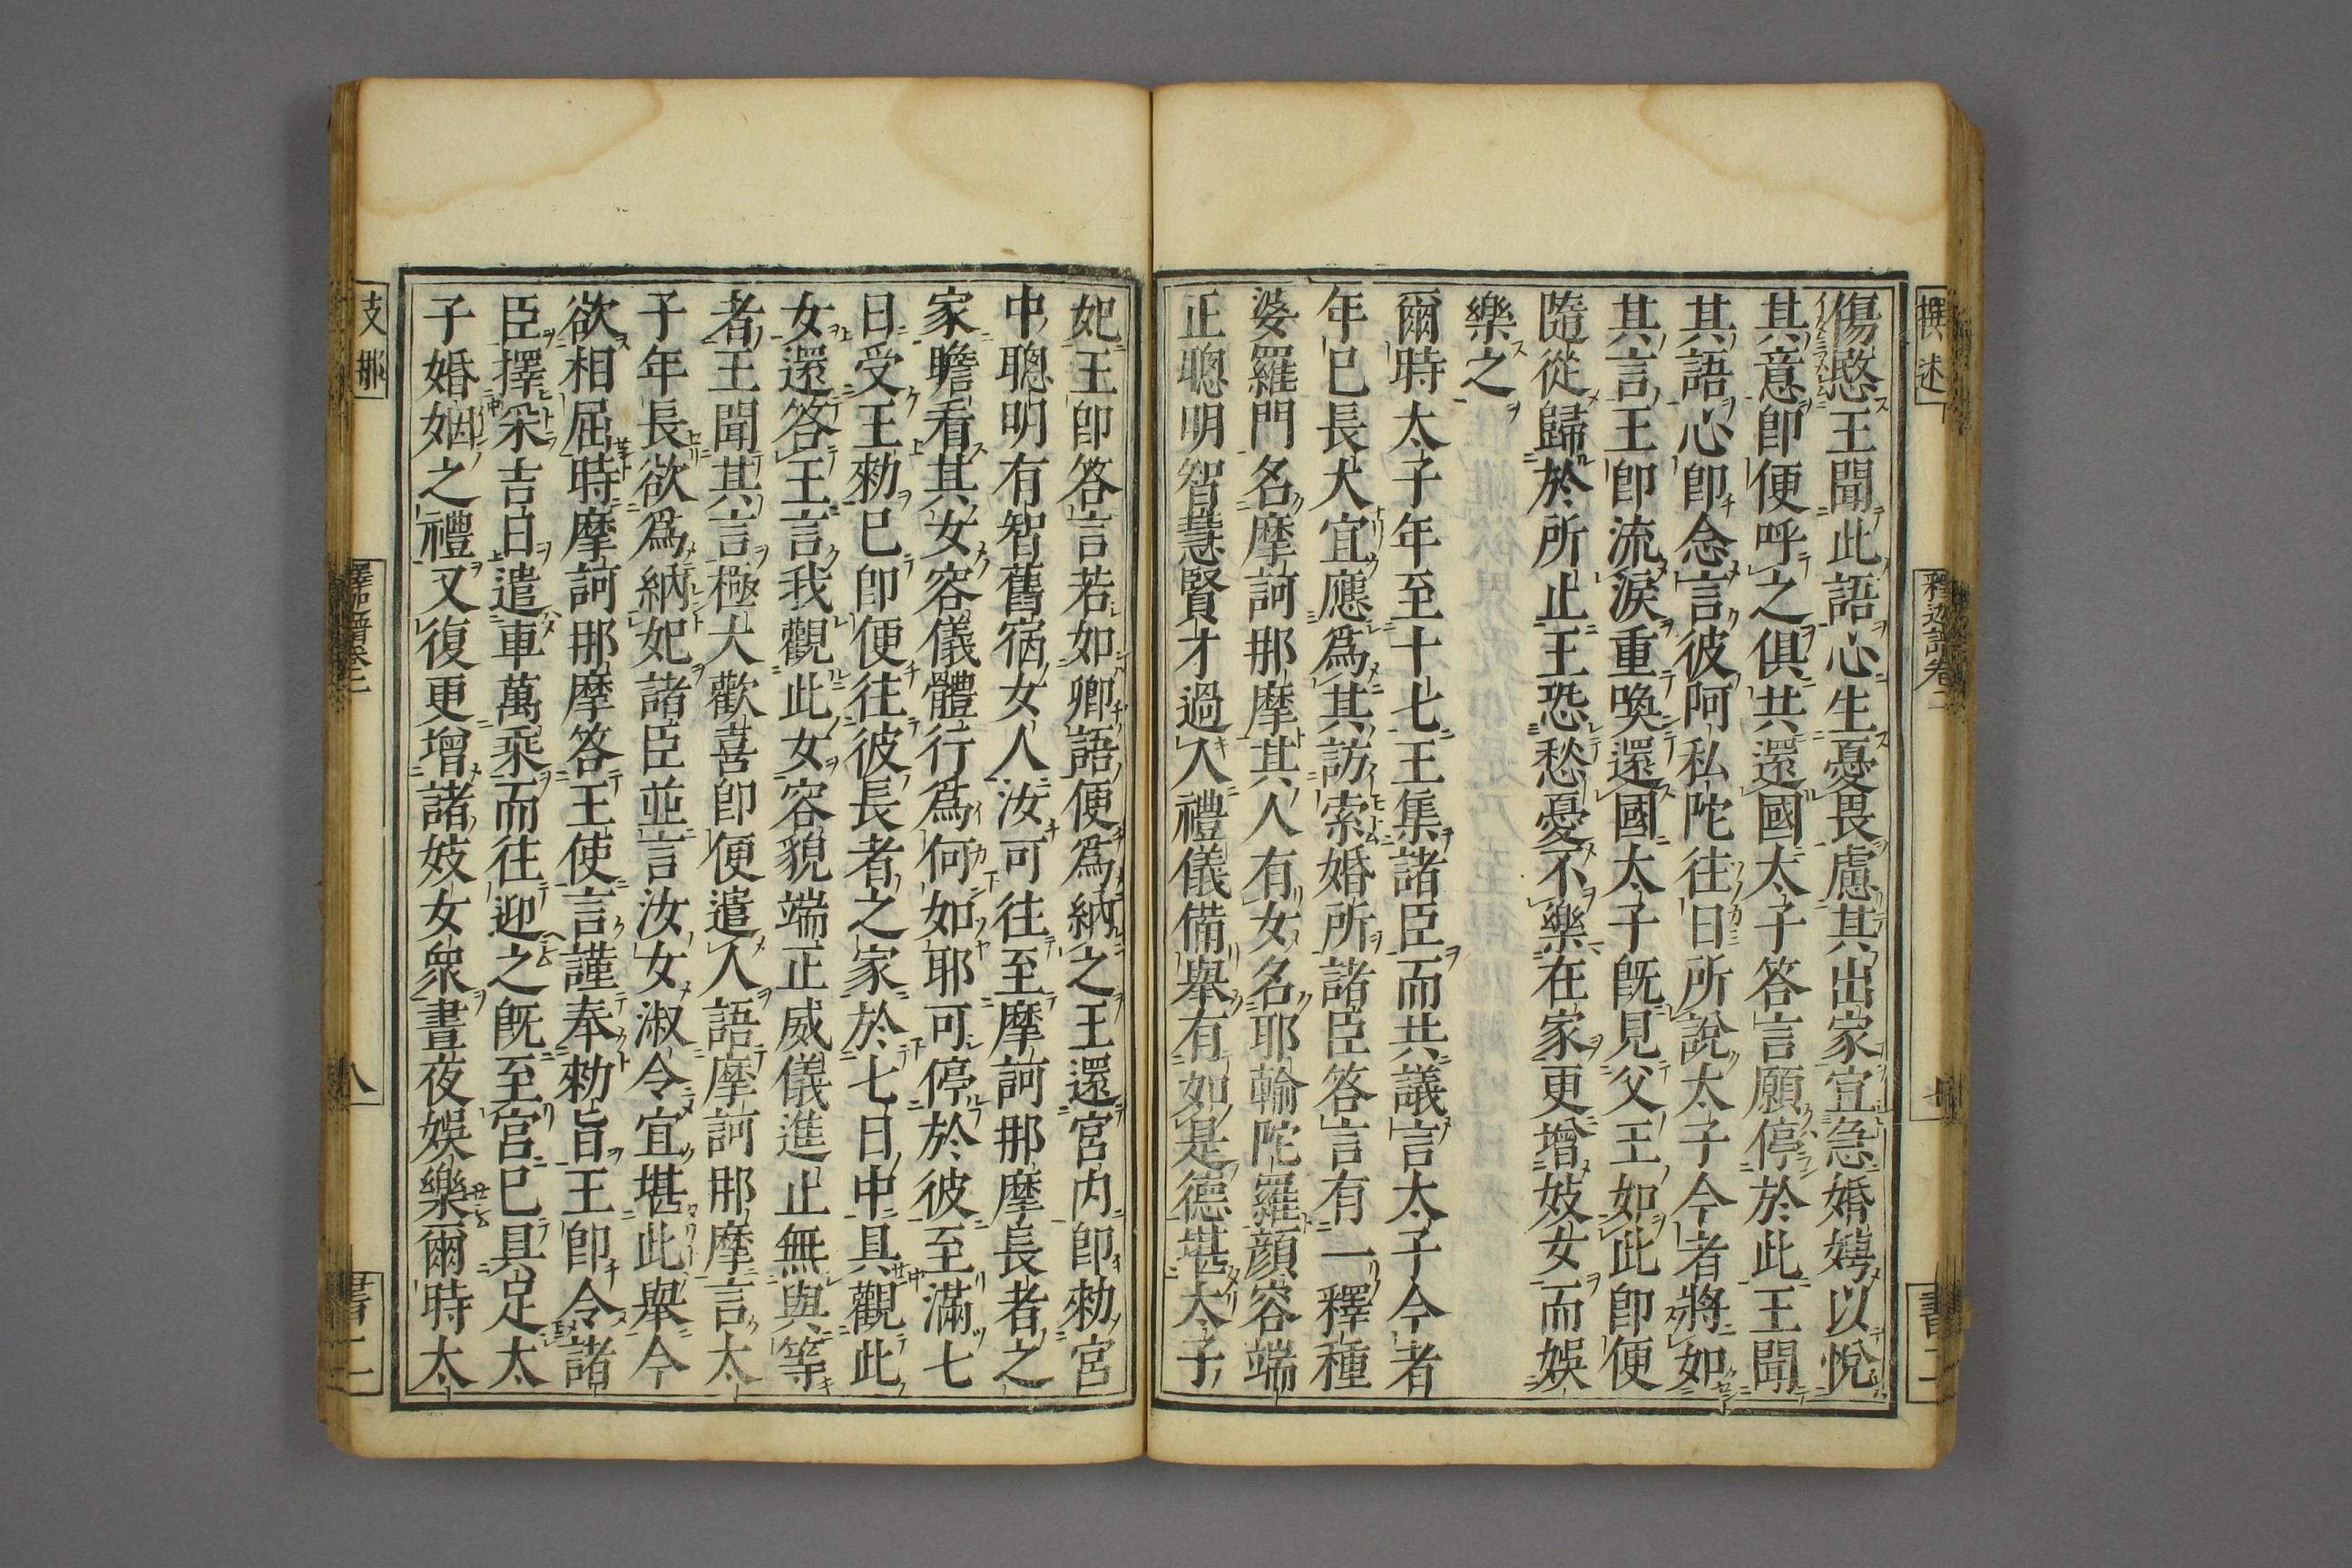 撰述
釋迦譜卷二
書二
傷愍王聞此語心生憂畏慮其出家宜急婚娉以悅
其意卽便呼之俱共還國太子答言願停於此王聞
其語心卽念言彼阿私陀往日所說太子今者將如
其言王卽流淚重喚還國太子旣見父王如此卽便
隨從歸於所止王恐愁憂不樂在家更增妓女而娛
樂之
爾時太子年至十七王集諸臣而共議言太子今者
年已長大宜應爲其訪索婚所諸臣答言有一釋種
婆羅門名摩訶那摩其人有女名耶輪陀羅顏容端
正聰明智慧賢才過人禮儀備舉有如是德堪太子
妃王卽答言若如卿語便爲納之王還宮內卽勑宮
中聰明有智舊宿女人汝可往至摩訶那摩長者之
家瞻看其女容儀體行爲何如耶可停於彼至滿七
日受王勑已卽便往彼長者之家於七日中具觀此
女還答王言我觀此女容貌端正威儀進止無與等
者王聞其言極大歡喜卽便遣人語摩訶那摩言太
子年長欲爲納妃諸臣並言汝女淑令宜堪此舉今
欲相屈時摩訶那摩答王使言謹奉勑旨王卽令諸
臣擇采吉日遣車萬乘而往迎之旣至宮已具足太
子婚姻之禮又復更增諸妓女衆晝夜娛樂爾時太
支那
釋迦譜卷二
八
書二